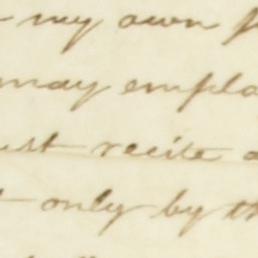 my own
may emplo
ust recite
only by th